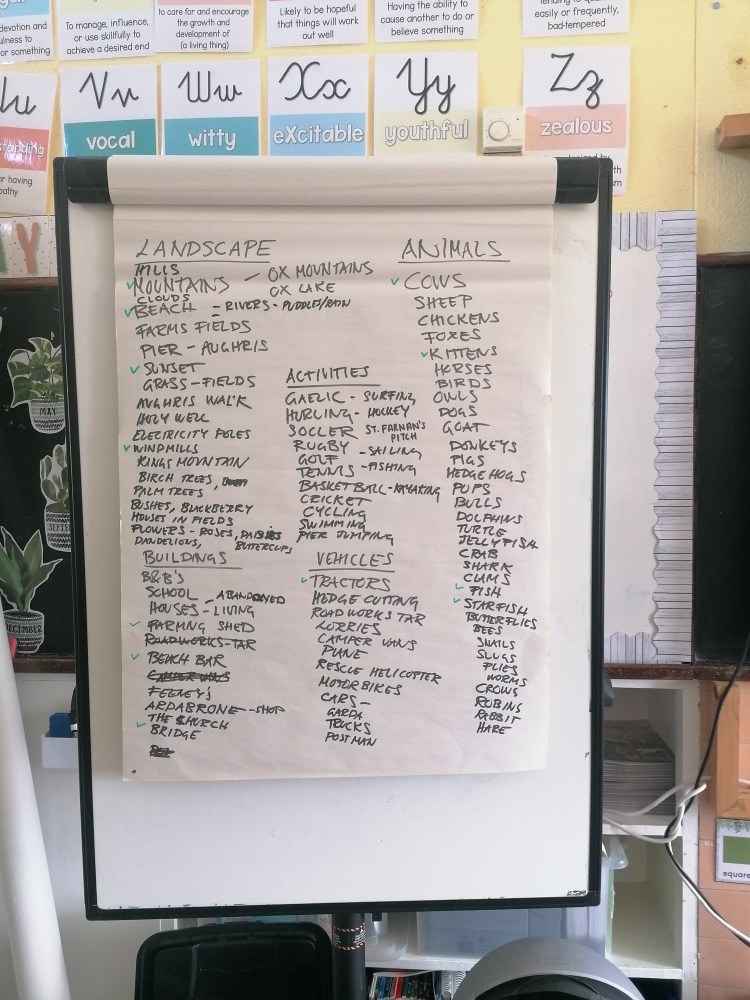 devotion and
ulness to
or something
To manage, influence,
or use skillfully to
achieve a desired end
to care for and encourage
the growth and
development of
(a living thing)
Likely to be hopeful
that things will work
out well
Having the ability to
cause another to do or
believe something
easily or frequently,
bad-tempered
Vv
vocal
Ww
witty
Xx
eXcitable
Yy
youthful
Zz
zealous
or having
pathy
AY
LANDSCAPE
HILLS
MOUNTAINS - OX MOUNTAINS
OX LAKE
CLOUDS
BEACH = RIVERS - PUDDLE/RAIN
FARMS FIELDS
PIER - AUGHRIS
SUNSET
GRASS - FIELDS
AUGHRIS WALK
HOLY WELL
ELECTRICITY POLES
WINDMILLS
KINGS MOUNTAIN
BIRCH TREES,
PALM TREES
BUSHES, BLACKBERRY
HOUSES IN FIELDS
FLOWERS - ROSES, DAISIES
DANDELIONS, BUTTERCUPS
BUILDINGS
B&B'S
SCHOOL - ABANDONED
HOUSES - LIVING
FARMING SHED
ROADWORKS-TAR
BEACH BAR
CAMPER VANS
FEENEY'S
ARDABRONE - SHOP
THE CHURCH
BRIDGE
ACTIVITIES
GAELIC - SURFING
HURLING - HOCKEY
SOCCER ST. FARNAN'S
PITCH
RUGBY - SAILING
GOLF
TENNIS - FISHING
BASKETBALL - KAYAKING
CRICKET
CYCLING
SWIMMING
PIER JUMPING
VEHICLES
TRACTORS
HEDGE CUTTING
ROADWORKS TAR
LORRIES
CAMPER VANS
PLANE
RESCUE HELICOPTER
MOTORBIKES
CARS -
GARDA
TRUCKS
POSTMAN
ANIMALS
COWS
SHEEP
CHICKENS
FOXES
KITTENS
HORSES
BIRDS
OWLS
DOGS
GOAT
DONKEYS
PIGS
HEDGEHOGS
PUPS
BULLS
DOLPHINS
TURTLE
JELLYFISH
CRAB
SHARK
CLAMS
FISH
STARFISH
BUTTERFLIES
BEES
SNAILS
SLUGS
FLIES
WORMS
CROWS
ROBINS
RABBIT
HARE
MAY
SEPTEMBER
DECEMBER
square